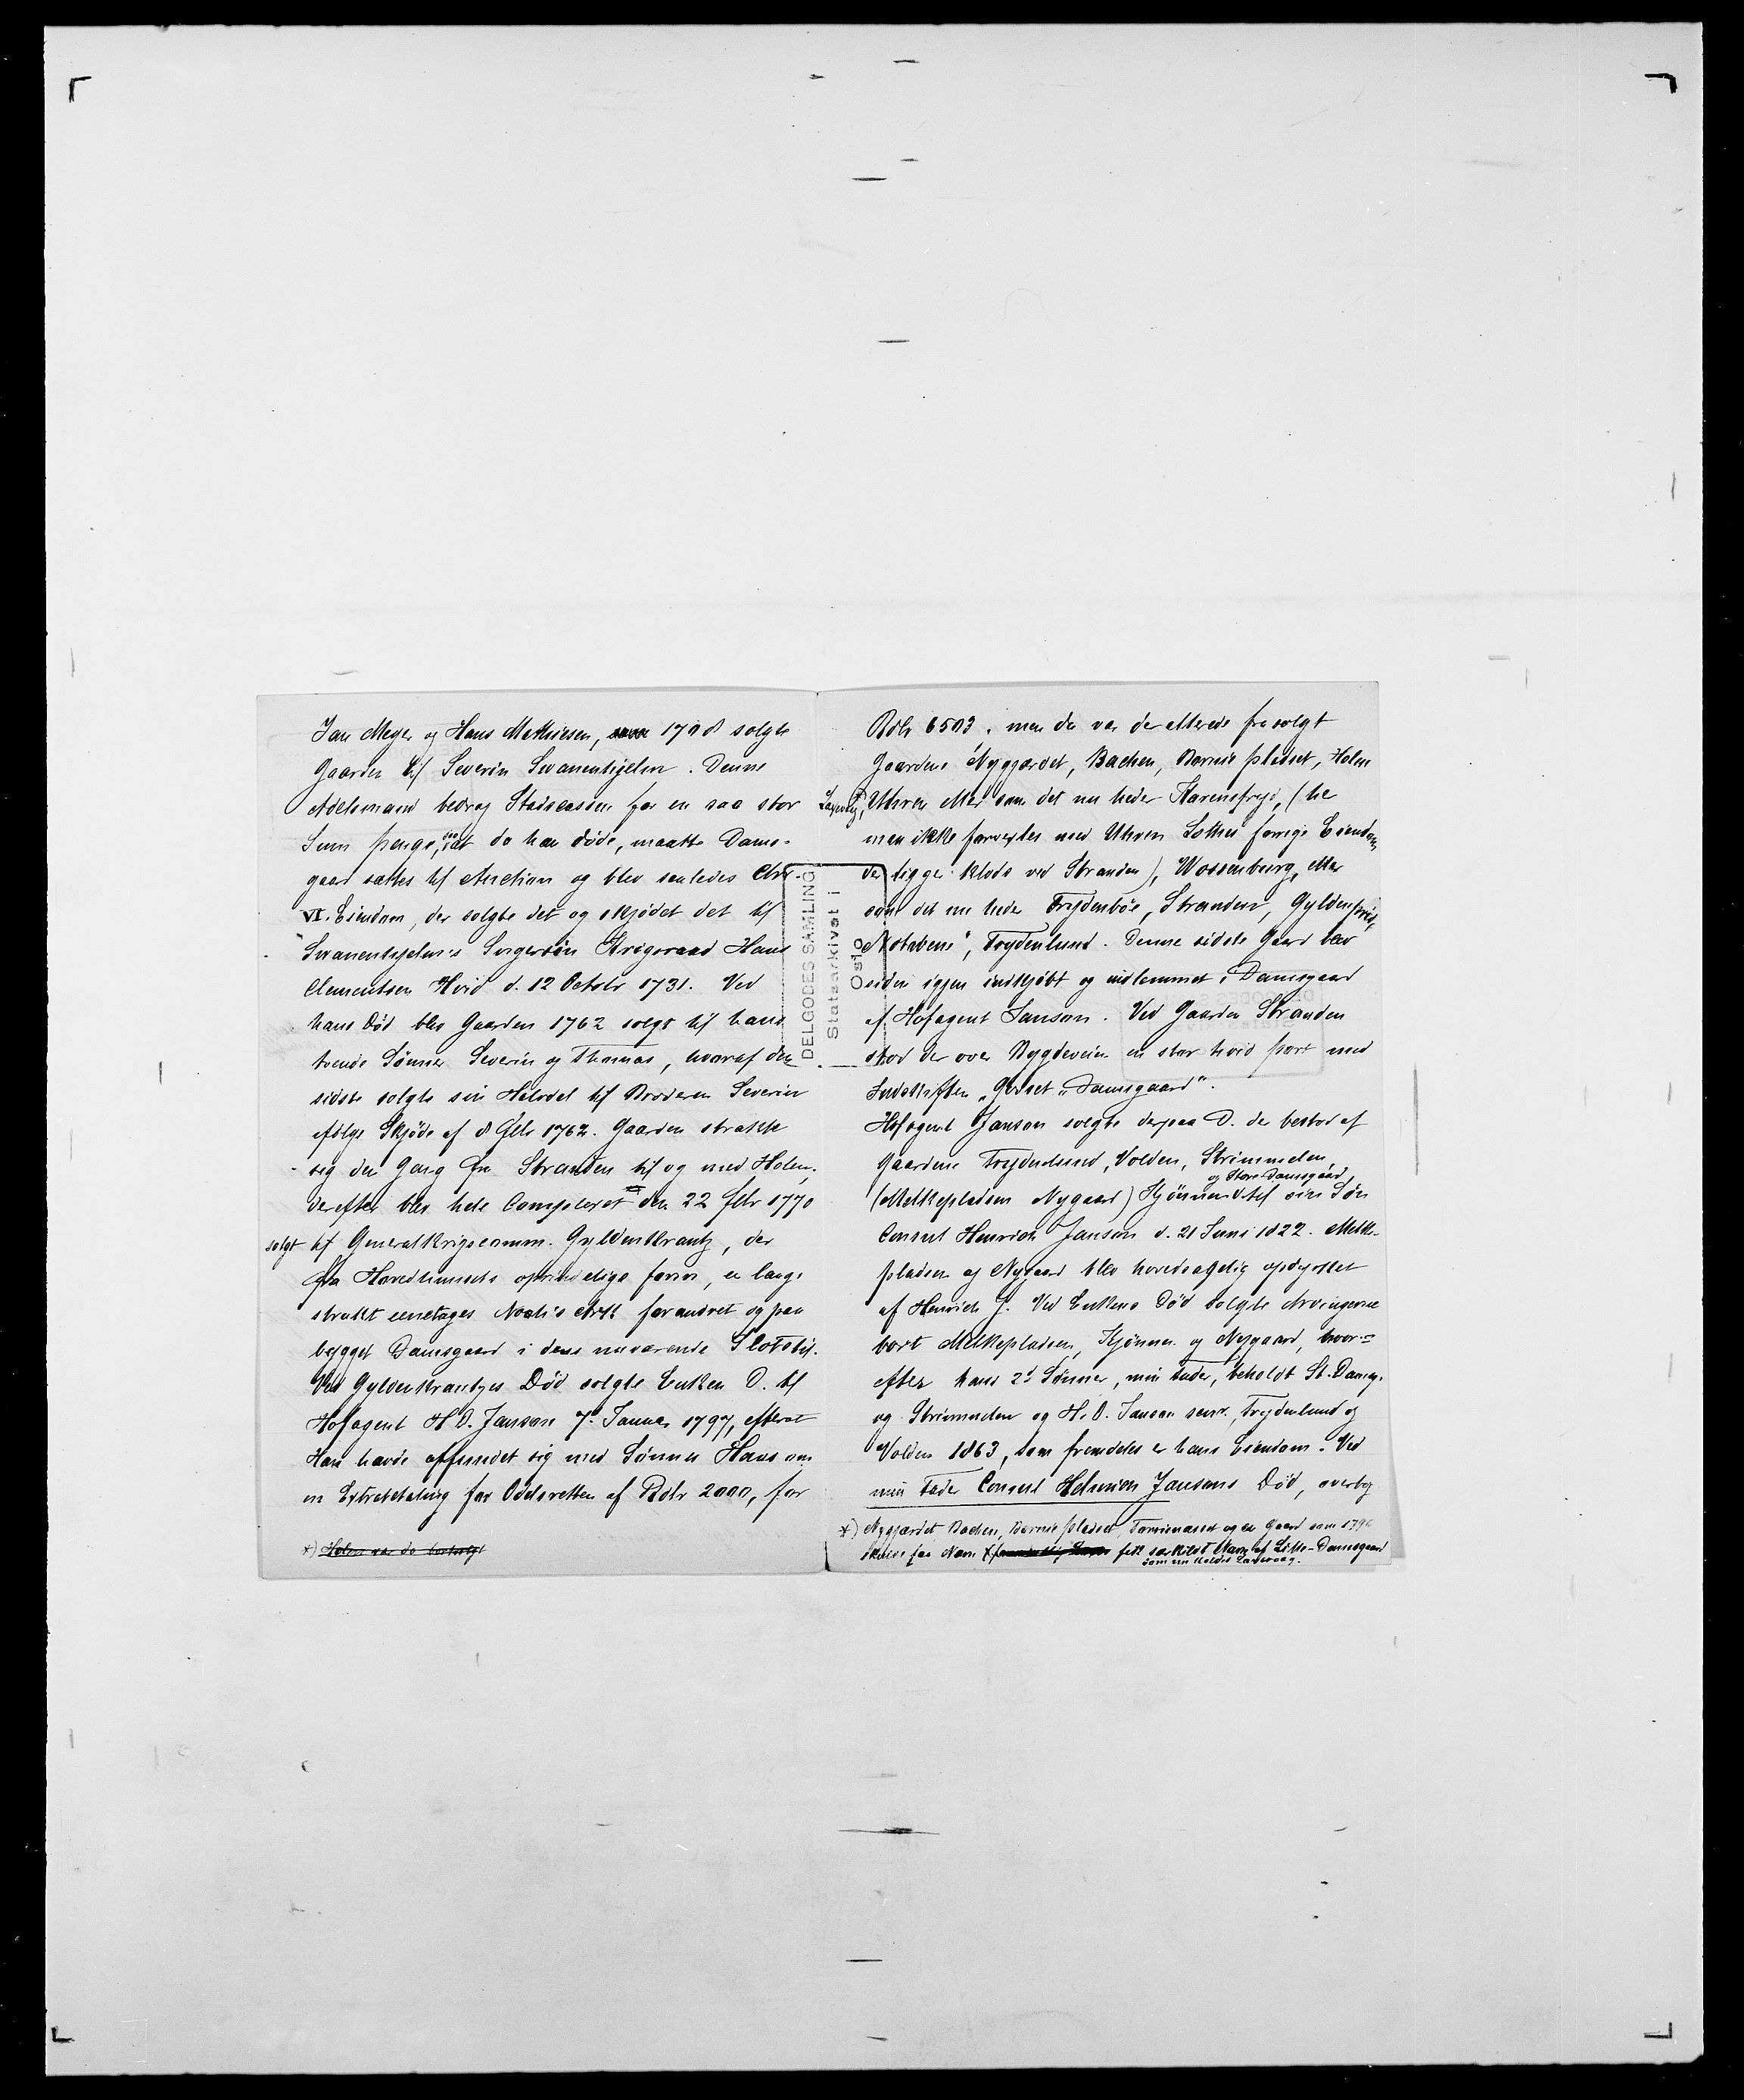 Jan Meyer og Hans Mathiesen, 1708 solgte
Gaarden til Severin Swanenhjelm. Denne
Adelsmand bedrog Stadscassen for en saa stor
Sum penge, saa at da han døde, maatte Dams-
gaard sættes til Auction og blev saaledes Chr
VI. Eiendom, der solgte det og skjødet det til
Swanenhjelms Svigersøn Krigsraad Hans
Clementsen Hvid d. 12 Octobr 1731. Ved
hans Død blev Gaarden 1762 solgt til hans
tvende Sønner Severin og Thomas, hvoraf den
sidste solgte sin Halvdel til Broderen Severin
ifølge Skjøde af 8 1762. Gaarden strakte
sig den Gang fra Stranden til og med Holen,
derefter blev hele Complexet den 22 1770
solgt til Generalkrigscomm. Gyldenkrantz, der
fra Hovedhusets oprindelige form, en lang-
strakt eenetages Noah's Ark forandret og paa
bygget Damsgaard i dens nuværende Slotsstil.
Ved Gyldenkrantzes Død solgte Enken D. til
Hofagent H. D. Janson 7de Januar 1797, efterat
Han havde affundet sig med Sønnen Hans om
en Extrabetaling for Odelsretten af Rdlr 2000, for
*) Holen var da bortsolgt
Rdlr 6503, men da var der allerede frasolgt
Gaardene Nygjærdet, Bachen, Bernts pladset, Holen
Laxevåg, *) Uhren eller som det nu heder Karensfryd, (he
man ikke forvexles med Uhren Lothes forrige Eiendom
der ligger klods ved Stranden), Wossenburg, eller
som det nu heder Frydenbøe, Stranden, Gyldenpriis,
"Notabene", Frydenlund. Denne sidste Gaard blev
siden igjen indkjøbt og indlemmet i Damsgaard
af Hofagent Janson. Ved Gaarden Stranden
stod der over Bygdeveien en stor hvid port med
Indskriften „Godset „Damsgaard".
Hofagent Janson solgte derpaa D. der bestod af
Gaardene Frydenlund, Volden, Strimmelen,
(Melkepladsen Nygaard) Kjønnen og Store Damsgaard til sin Søn
Consul Henrich Janson d. 21 Juni 1822. Melke-
pladsen og Nygaard blev hovedsagelig opdyrket
af Henrich J. Ved Enkens Død solgte Arvingerne
bort Melkepladsen, Kjønnen og Nygaard, hvor=
efter hans 2de Sønner, min fader, beholdt St. Damsg.
og Strimmelen og H. D. Janson senr. Frydenlund og
Volden 1863, som fremdeles er hans Eiendom. Ved
min Fader Consul Helmich Jansons Død, overtog
*) Nygjærdet Bachen, Bernts pladset, og en Gaard som 1796
skulde faa Navn fik særskilt Navn af Lille-Damsgaard
som nu kaldes Laxevaag.
DELGOBES SAMLING
Statsarkivet i
Oslo